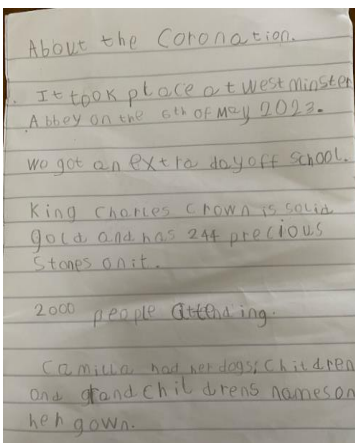 About the Coronation.
. It took place at Westminster
Abbey on the 6th of May 2023.
We got an extra day off school.
King Charles Crown is solid
gold and has 244 precious
Stones on it.
2000 people attending.
Camilla had her dogs, Children
and grand Childrens names on
her gown.